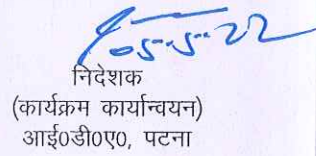 05-5-22
निदेशक
(कार्यक्रम कार्यान्वयन)
आई०डी०ए०, पटना